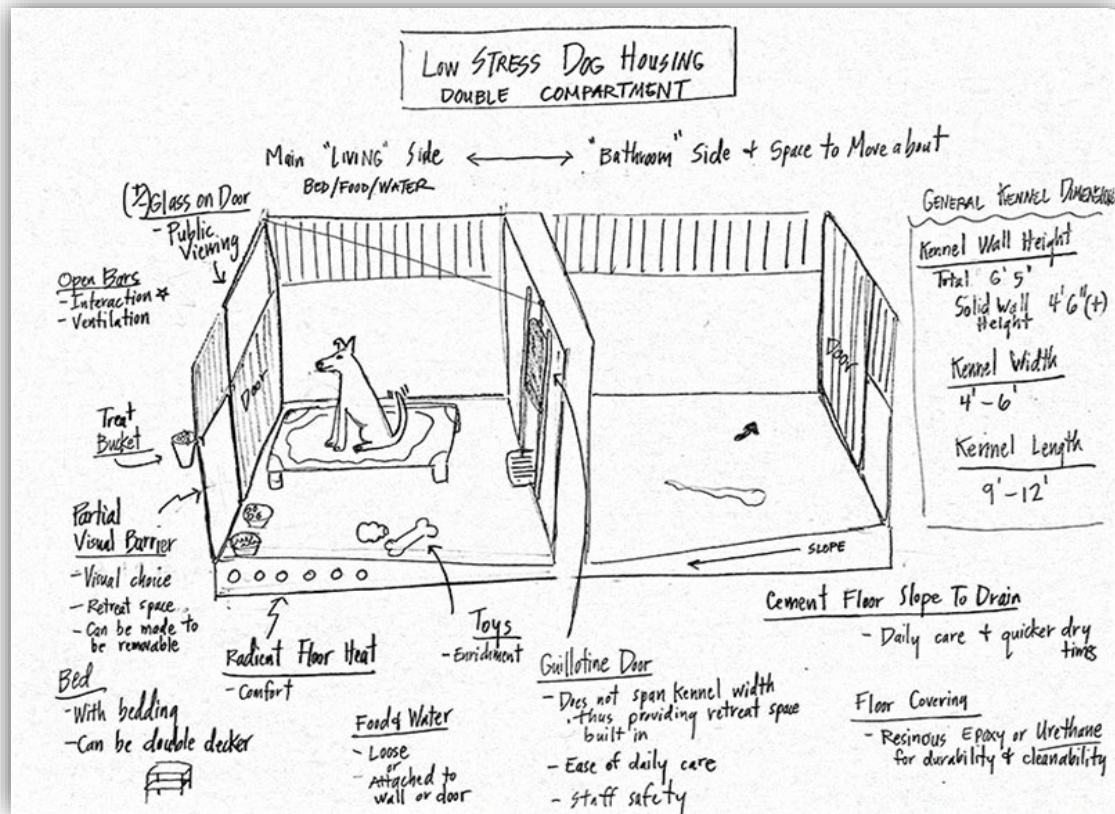 LOW STRESS DOG HOUSING
DOUBLE COMPARTMENT
Main "LIVING" Side
BED/FOOD/WATER
"Bathroom" Side + Space to Move about
(½) Glass on Door
- Public Viewing
Open Bars
- Interaction ☆
- Ventilation
Treat
Bucket
Partial
Visual Barrier
- Visual choice
- Retreat space
- Can be made to
be removable
Bed
- With bedding
- Can be double decker
Door
Radient Floor Heat
- Comfort
Toys
- Enrichment
Food & Water
- Loose
or
- Attached to
wall or door
Guillotine Door
- Does not span kennel width
thus providing retreat space
built in
- Ease of daily care
- Staff safety
Door
SLOPE
Cement Floor Slope To Drain
- Daily care + quicker dry
times
Floor Covering
- Resinous Epoxy or Urethane
for durability & cleanability
GENERAL KENNEL DIMENSIONS
Kennel Wall Height
Total 6' 5'
Solid Wall 4'6"(+)
Height
Kennel Width
4' - 6'
Kennel Length
9' - 12'